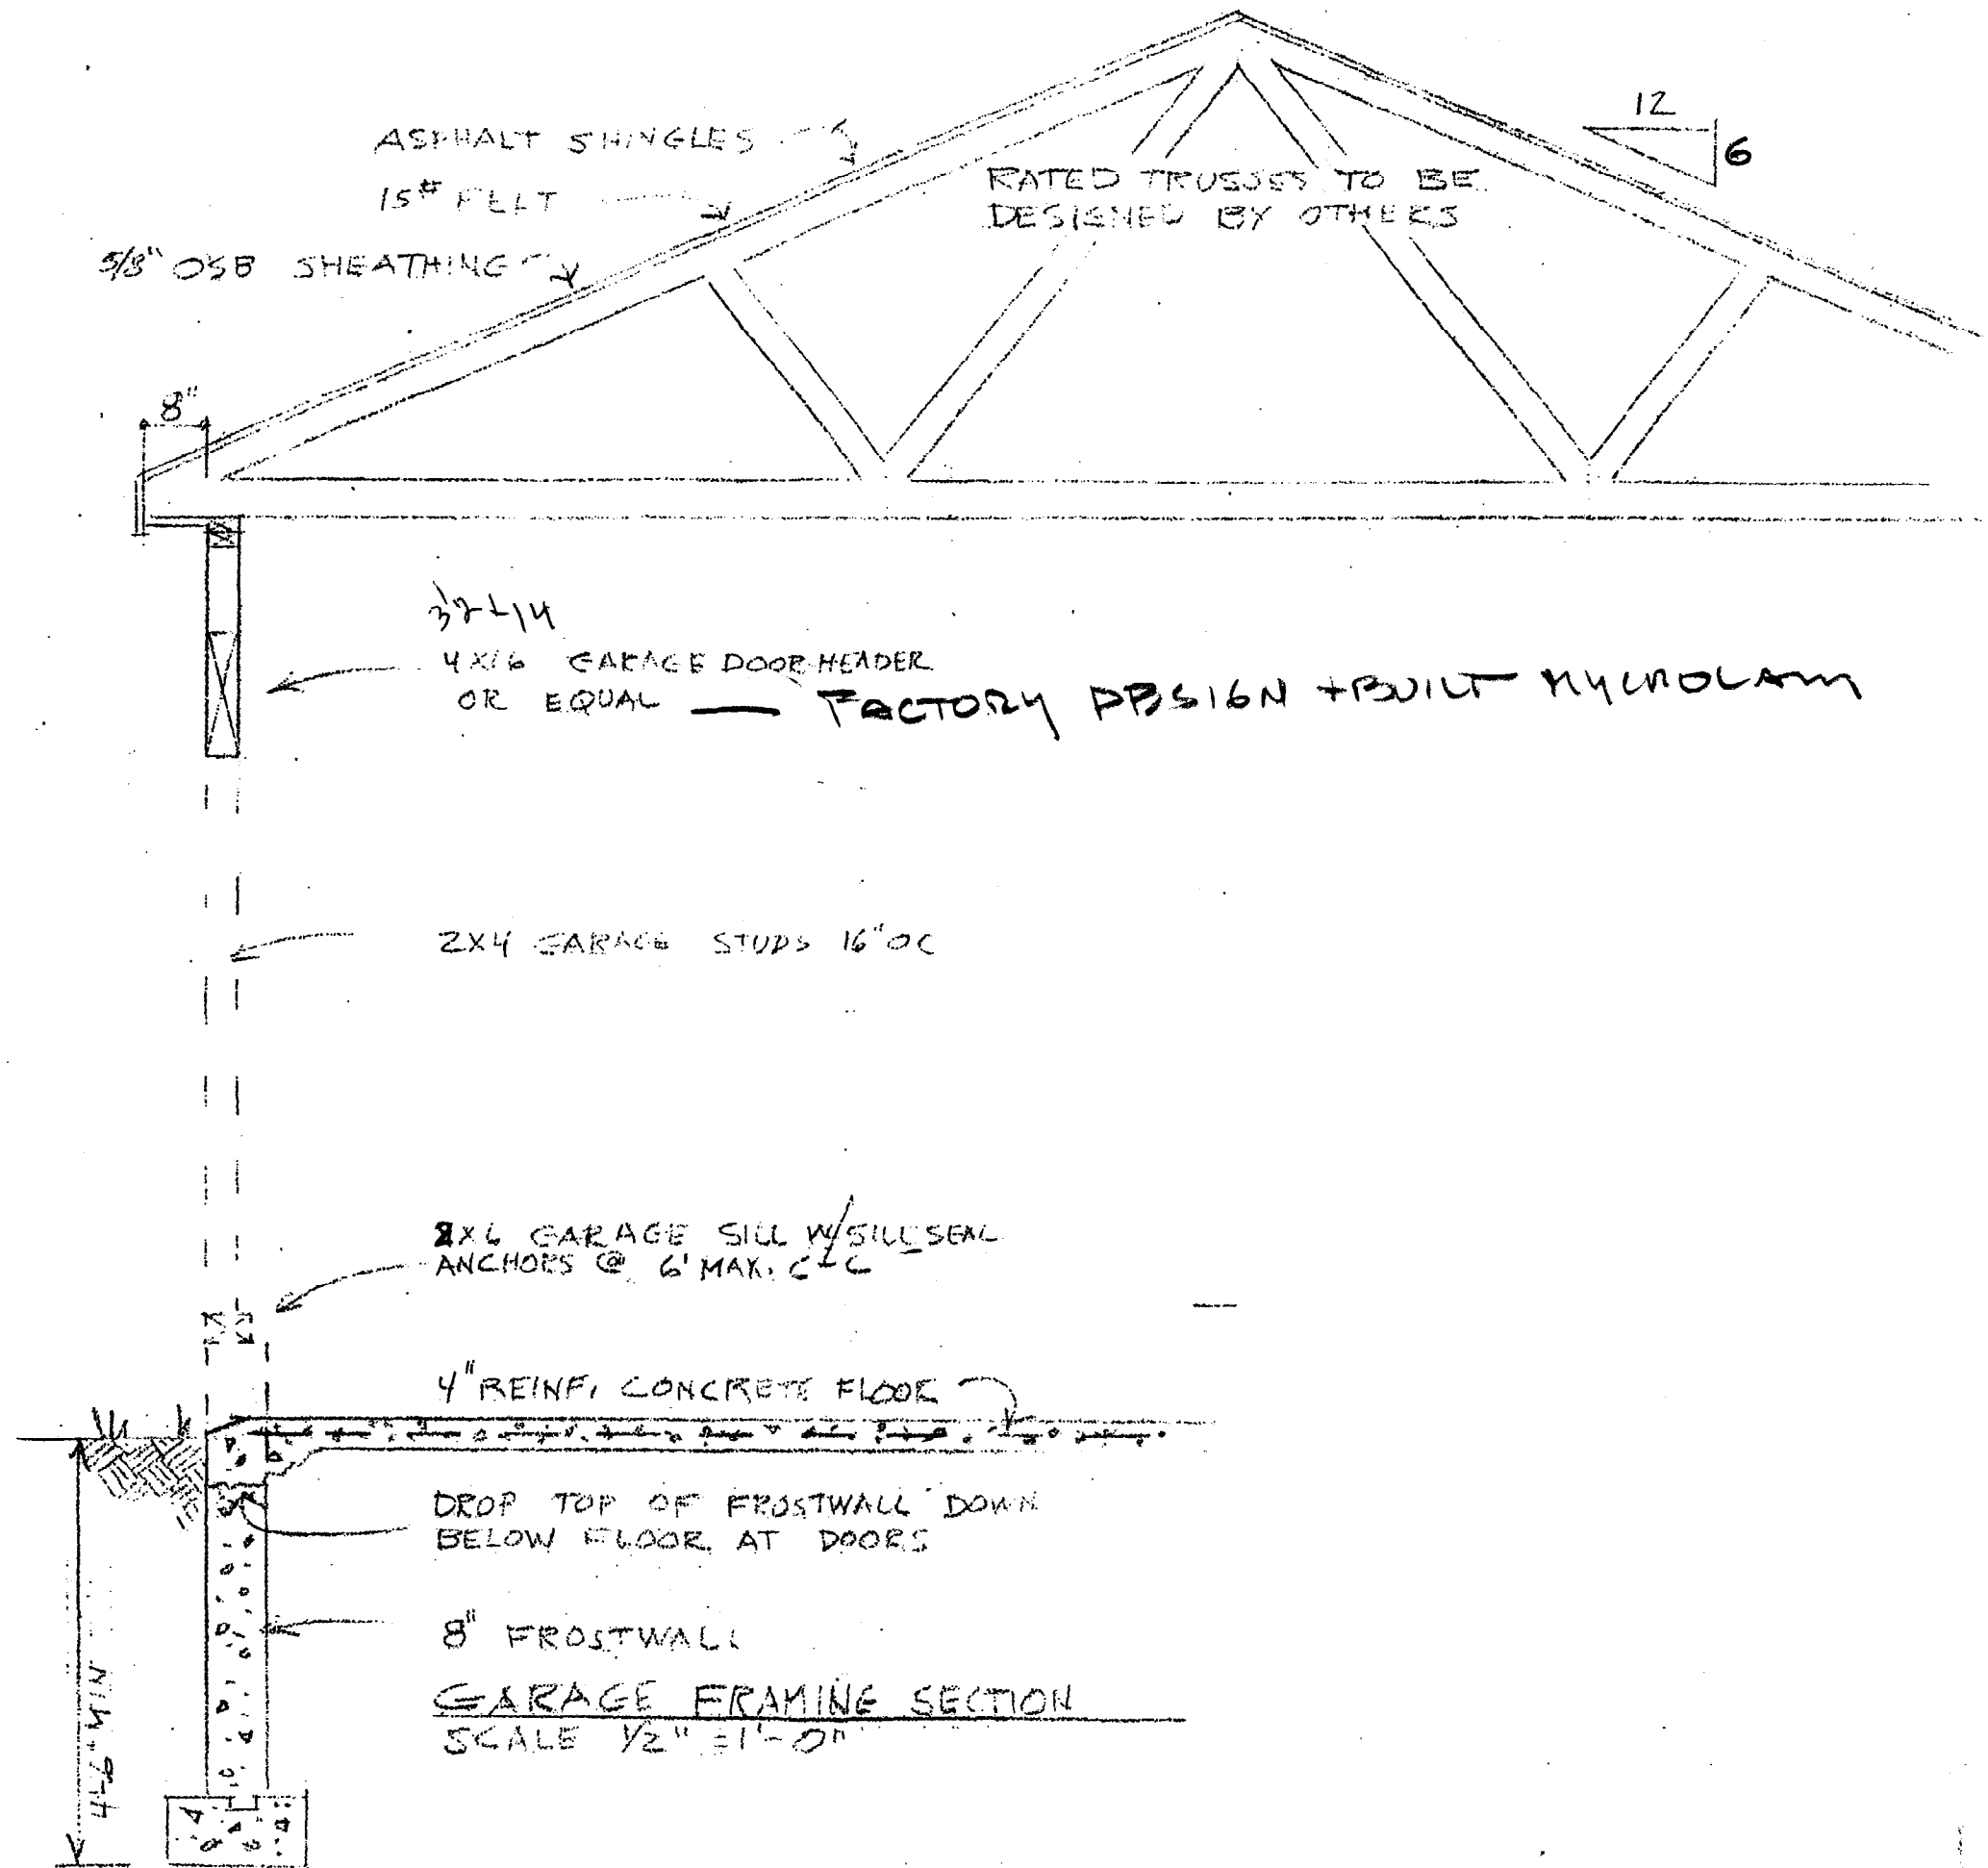 12
6
ASPHALT SHINGLES
15# FELT
5/8" OSB SHEATHING
RATED TRUSSES TO BE
DESIGNED BY OTHERS
8"
4X16 GARAGE DOOR HEADER
OR EQUAL — FACTORY DESIGN + BUILT MYCROLAM
2X4 GARAGE STUDS 16" OC
2X6 GARAGE SILL W/SILL SEAL
ANCHORS @ 6' MAX. C-C
4" REINF. CONCRETE FLOOR
DROP TOP OF FROSTWALL DOWN
BELOW FLOOR AT DOORS
8" FROSTWALL
4'-6" MIN
GARAGE FRAMING SECTION
SCALE 1/2" = 1'-0"